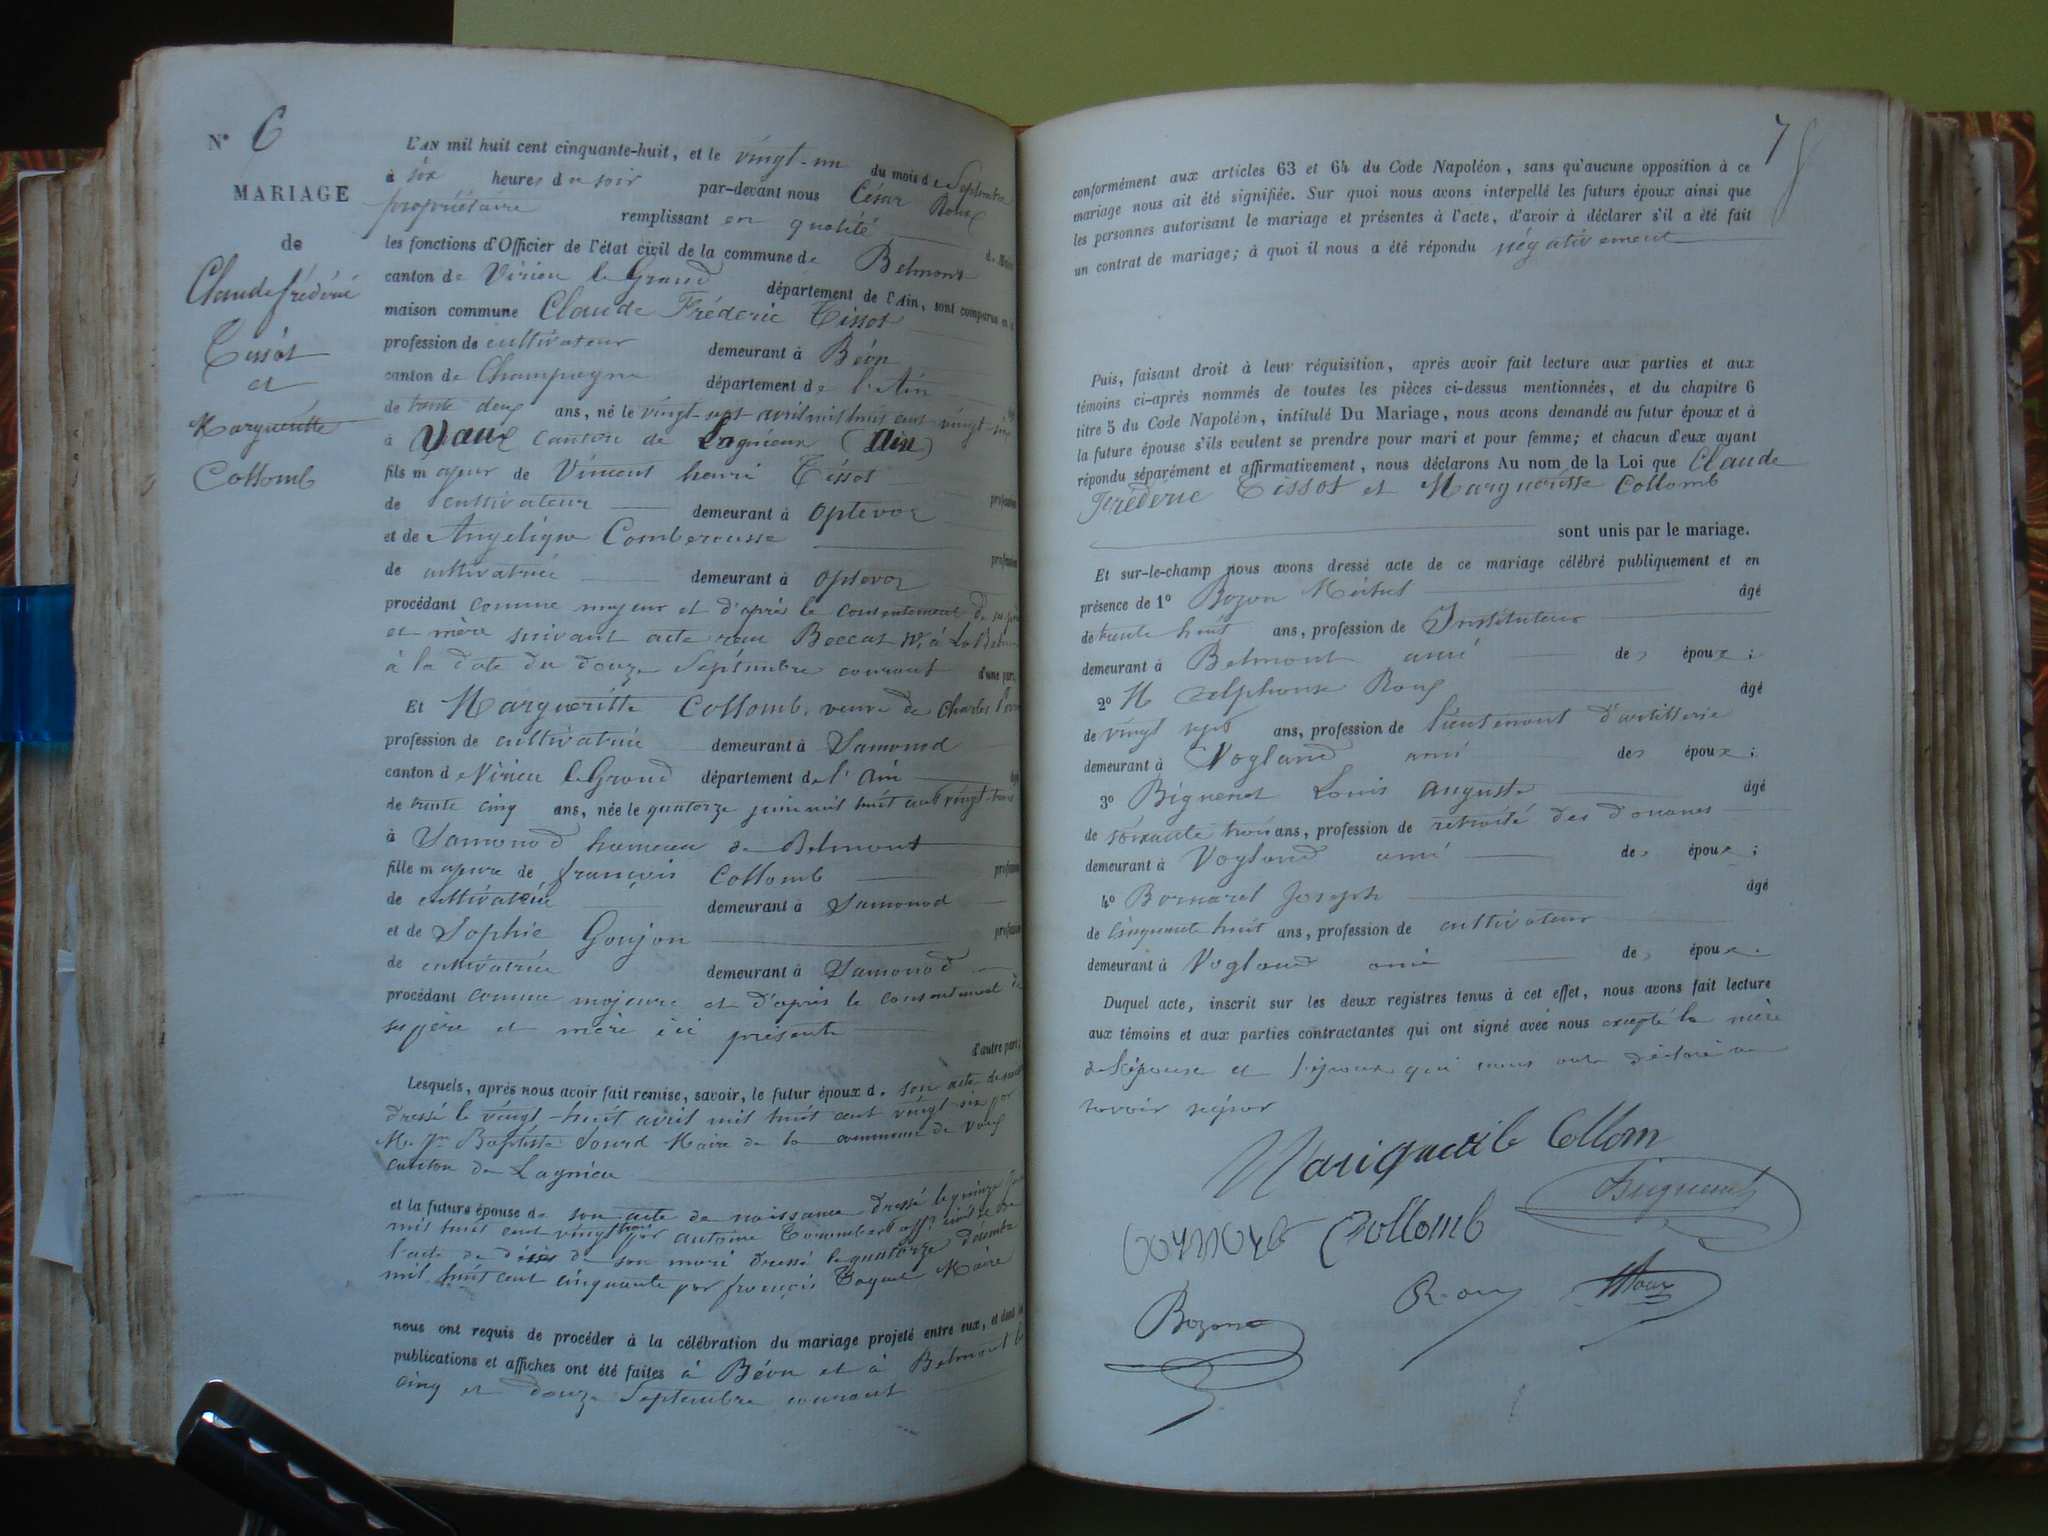 N° 6
MARIAGE
de
Claude frédéric
Tissot
et
Margueritte
Collomb
L'AN mil huit cent cinquante-huit, et le vingt-un du mois de Septembre
à six heures du soir par-devant nous César Roux
propriétaire remplissant en qualité de Maire
les fonctions d'Officier de l'état civil de la commune de Belmont
canton de Virieu le Grand département de l'Ain, sont comparus en la
maison commune Claude Fréderic Tissot
profession de cultivateur demeurant à Béon
canton de Champagne département de l'Ain
de trente deux ans, né le vingt-sept avril mil huit cent vingt-six
à Vaux canton de Lagnieux (Ain)
fils majeur de Vincent henri Tissot
de cultivateur demeurant à Optevoz profession
et de Angélique Comberousse
de cultivatrice demeurant à Optevoz profession
procédant comme majeur et d'après le consentement de ses père
et mère suivant acte reçu Beccat Nre à La Balme
à la date du douze Septembre courant d'une part,
Et Margueritte Collomb, veuve de Charles
profession de cultivatrice demeurant à Samonod
canton de Virieu le Grand département de l'Ain âgé
de trente cinq ans, née le quatorze juin mil huit cent vingt-trois
à Samonod hameau de Belmont
fille majeure de françois Collomb profession
de cultivatrice demeurant à Samonod
et de Sophie Goujon profession
de cultivatrice demeurant à Samonod
procédant comme majeure et d'après le consentement de
ses père et mère ici présents
d'autre part;
Lesquels, après nous avoir fait remise, savoir, le futur époux de son acte de naissance
dressé le vingt-huit avril mil huit cent vingt-six par
Mr Jn Baptiste Sourd Maire de la commune de Vaux
canton de Lagnieu
et la future épouse de son acte de naissance dressé le quinze juin
mil huit cent vingt trois par antoine
l'acte de décès de son mari dressé le quatorze décembre
mil huit cent cinquante par françois Maire
nous ont requis de procéder à la célébration du mariage projeté entre eux, et dont les
publications et affiches ont été faites à Béon et à Belmont les
cinq et douze Septembre courant
7
conformément aux articles 63 et 64 du Code Napoléon, sans qu'aucune opposition à ce
mariage nous ait été signifiée. Sur quoi nous avons interpellé les futurs époux ainsi que
les personnes autorisant le mariage et présentes à l'acte, d'avoir à déclarer s'il a été fait
un contrat de mariage; à quoi il nous a été répondu négativement
Puis, faisant droit à leur réquisition, après avoir fait lecture aux parties et aux
témoins ci-après nommés de toutes les pièces ci-dessus mentionnées, et du chapitre 6
titre 5 du Code Napoléon, intitulé Du Mariage, nous avons demandé au futur époux et à
la future épouse s'ils veulent se prendre pour mari et pour femme; et chacun d'eux ayant
répondu séparément et affirmativement, nous déclarons Au nom de la Loi que Claude
Fréderic Tissot et Margueritte Collomb
sont unis par le mariage.
Et sur-le-champ nous avons dressé acte de ce mariage célébré publiquement et en
présence de 1° Bozon âgé
de trente huit ans, profession de Instituteur
demeurant à Belmont ami des époux;
2° M Alphonse Roux âgé
de vingt sept ans, profession de lieutenant d'artillerie
demeurant à Vogland ami des époux;
3° Biguenet Louis auguste âgé
de soixante trois ans, profession de retraité des douanes
demeurant à Vogland ami des époux;
4° Bornarel Joseph âgé
de cinquante huit ans, profession de cultivateur
demeurant à Vogland ami des époux.
Duquel acte, inscrit sur les deux registres tenus à cet effet, nous avons fait lecture
aux témoins et aux parties contractantes qui ont signé avec nous excepté la mère
de l'épouse et l'époux qui nous ont déclaré ne
savoir signer
Collom
Biguenet
Collomb
Roux
Bozon